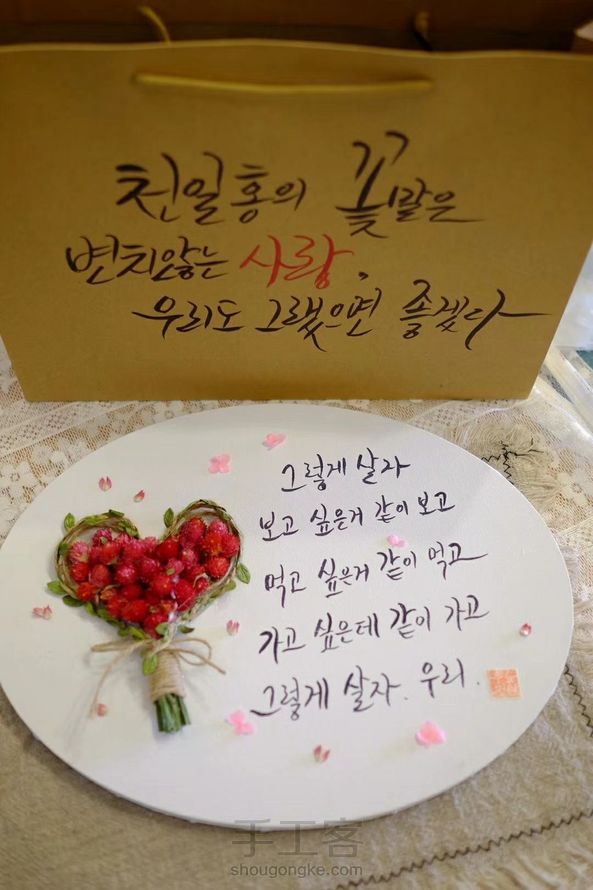 천일홍의 꽃말은
변치않는 사랑,
우리도 그랬으면 좋겠다
그렇게 살자
보고 싶은거 같이 보고
먹고 싶은거 같이 먹고
가고 싶은데 같이 가고
그렇게 살자. 우리.
手工客
shougongke.com